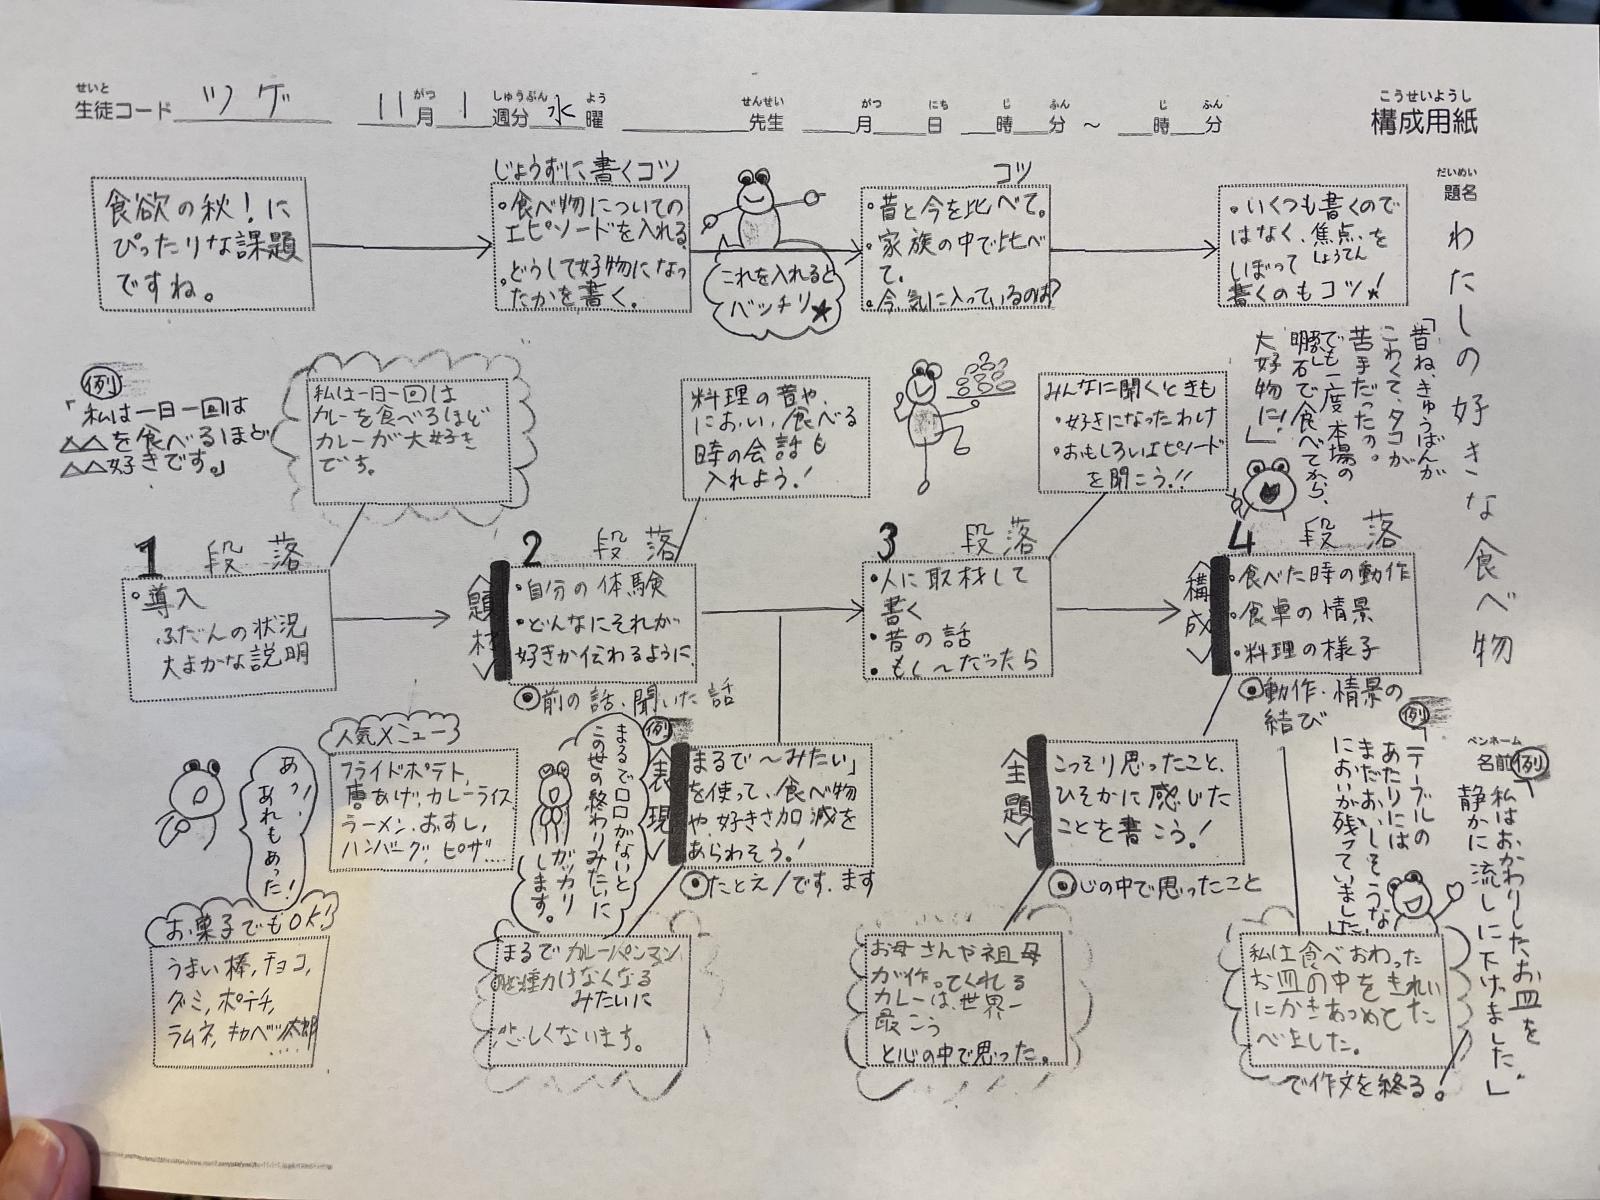 せいと
生徒コード ツゲ
がつ しゅうぶん よう
11月 1週分 水曜
せんせい
先生
がつ にち じ ふん じ ふん
月 日 時 分 ～ 時 分
こうせいようし
構成用紙
だいめい
題名
わたしの好きな食べ物
食欲の秋！に
ぴったりな課題
ですね。
じょうずに書くコツ
・食べ物についての
エピソードを入れる
・どうして好物になっ
たかを書く。
これを入れると
バッチリ★
コツ
・昔と今を比べて。
・家族の中で比べ
て。
・今、気に入っているのは？
・いくつも書くので
はなく、焦点を
しょうてん
しぼって
書くのもコツ！
「昔ね、きゅうばんが
こわくて、タコが
苦手だったの。
でも一度、本場の
明石で食べてから、
大好物に！」
例
「私は一日一回は
△△を食べるほど
△△好きです。」
私は一日一回は
カレーを食べるほど
カレーが大好き
です。
料理の音や、
におい、食べる
時の会話も
入れよう！
みんなに聞くときも
・好きになったわけ
・おもしろいエピソード
を聞こう!!
1 段落
・導入
ふだんの状況
大まかな説明
2 段落
〈題材〉
・自分の体験
・どんなにそれが
好きか伝わるように
◎前の話、聞いた話
3 段落
・人に取材して
書く
・昔の話
・もし～だったら
4 段落
〈構成〉
・食べた時の動作
・食卓の情景
・料理の様子
◎動作・情景の
結び
例
テーブルの
あたりには
まだおいしそうな
においが残っていました
ペンネーム
名前
例
私はおかわりしたお皿を
静かに流しに下げました。」
あっ！
あれもあった！
人気メニュー
フライドポテト、
唐あげ、カレーライス
ラーメン、おすし、
ハンバーグ、ピザ…
例
まるで口口がないと
この世の終わりみたいに
ガッカリ
します。
〈表現〉
「まるで～みたい」
を使って、食べ物
や、好きさ加減を
あらわそう！
◎たとえ／です、ます
〈主題〉
こっそり思ったこと、
ひそかに感じた
ことを書こう！
◎心の中で思ったこと
お菓子でもOK!
うまい棒、チョコ、
グミ、ポテチ、
ラムネ、キャベツ太郎
……
まるでカレーパンマン
みたいに
悲しくないます。
お母さんや祖母
が作ってくれる
カレーは、世界一
最こう
と心の中で思った。
私は食べおわった
お皿の中をきれい
にかきあつめてた
べました。
で作文を終る。